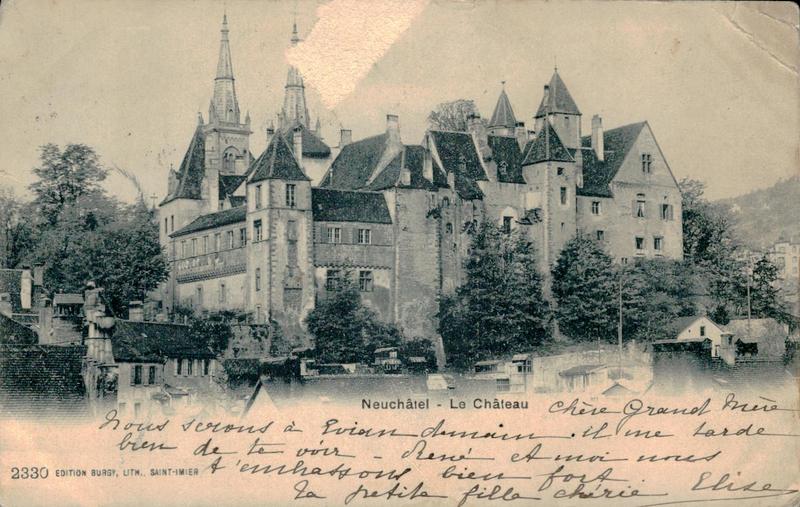 Neuchâtel - Le Château
chère Grand Mère
Nous serons à Evian demain. il me tarde
bien de te voir - René et moi nous
t'embrassons bien fort
Ta petite fille chérie Elise
2330 EDITION BURGY, LITH., SAINT-IMIER